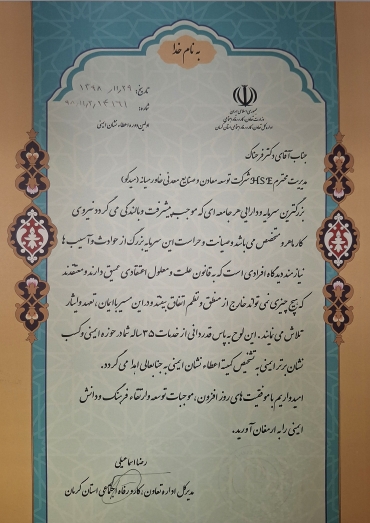 به نام خدا
تاریخ: ۱۳۹۸/۱۱/۲۶
شماره:
اولین دوره اعطاء نشان ایمنی
جمهوری اسلامی ایران
وزارت تعاون، کار و رفاه اجتماعی
اداره کل تعاون، کار و رفاه اجتماعی استان کرمان
جناب آقای دکتر فرهنگ
مدیریت محترم HSE شرکت توسعه معادن و صنایع معدنی خاورمیانه (میدکو)
بزرگترین سرمایه و دارایی هر جامعه ای که موجب پیشرفت و بالندگی می گردد نیروی
کار ماهر و متخصص می باشد و صیانت و حراست این سرمایه بزرگ از حوادث و آسیب ها
نیازمند دیدگاه افرادی است که به قانون علت و معلول اعتقادی عمیق دارند و معتقدند
که هیچ چیزی نمی تواند خارج از منطق و نظم اتفاق بیفتد و در این مسیر با ایمان، تعهد و ایثار
تلاش می نمایند. این لوح به پاس قدردانی از خدمات ۳۵ ساله شما در حوزه ایمنی و کسب
نشان برتر ایمنی به تشخیص کمیته اعطاء نشان ایمنی به جنابعالی اهدا می گردد.
امید داریم با موفقیت های روز افزون، موجبات توسعه و ارتقاء فرهنگ و دانش
ایمنی را به ارمغان آورید.
رضا اسماعیلی
مدیرکل اداره تعاون، کار و رفاه اجتماعی استان کرمان